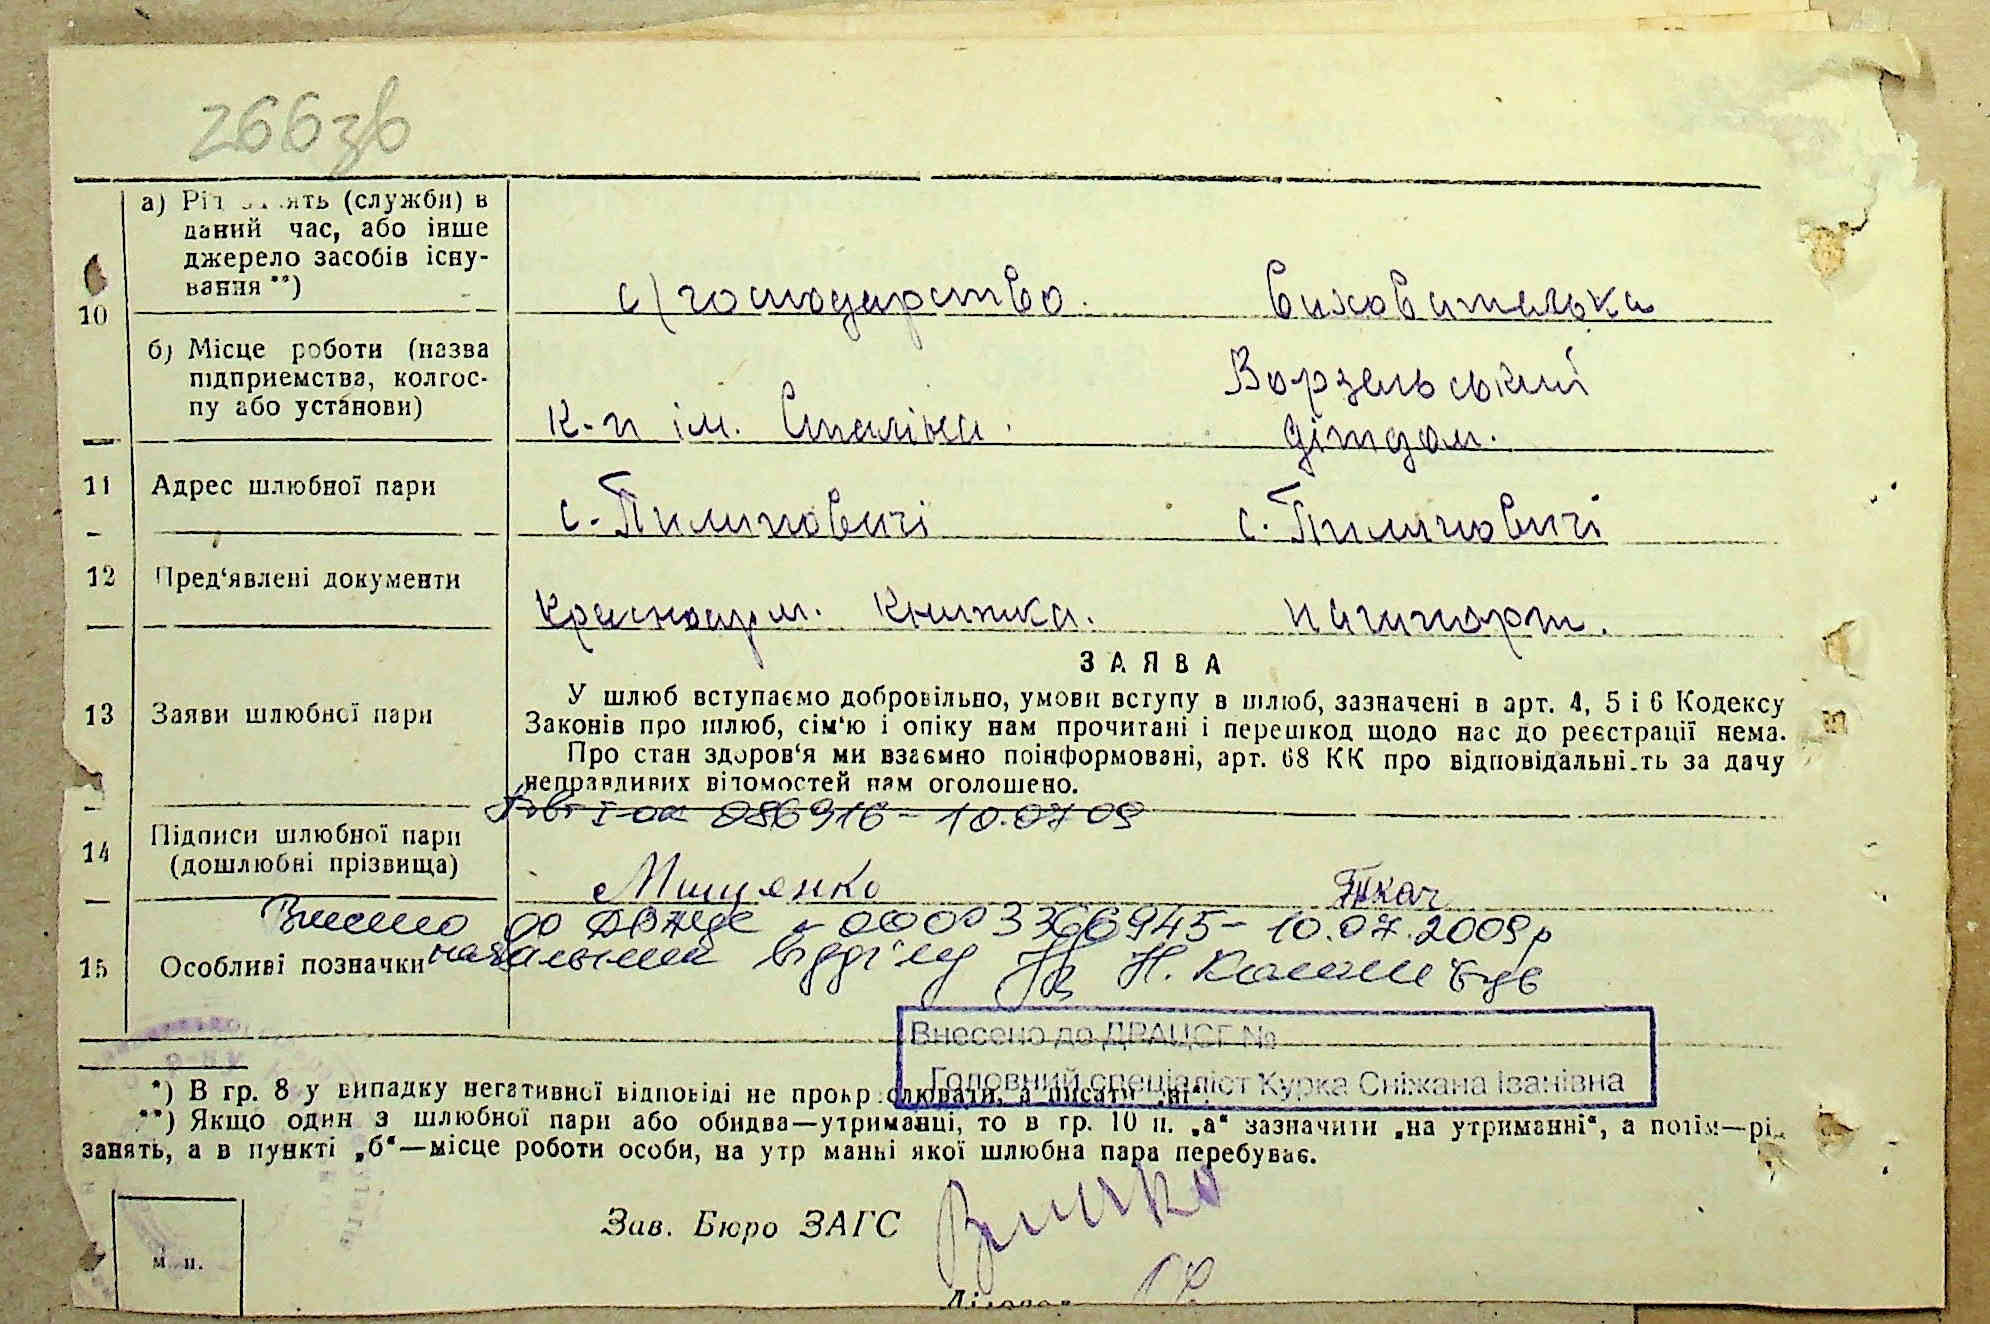 266зв
а) Рід занять (служби) в
даний час, або інше
джерело засобів існу-
вання **)
с/господарство. вихователька
10
б) Місце роботи (назва
підприємства, колгос-
пу або установи)
к-п ім. Сталіна. Ворзельський
дітдом.
11 Адрес шлюбної пари с. Пилиповичі с. Пилиповичі
12 Пред'явлені документи красноарм. книжка. пашпорт.
13 Заяви шлюбної пари
ЗАЯВА
У шлюб вступаємо добровільно, умови вступу в шлюб, зазначені в арт. 4, 5 і 6 Кодексу
Законів про шлюб, сім'ю і опіку нам прочитані і перешкод щодо нас до реєстрації нема.
Про стан здоров'я ми взаємно поінформовані, арт. 68 КК про відповідальність за дачу
неправдивих відомостей нам оголошено.
Повт I-ок 086916 - 10.07 09
14 Підписи шлюбної пари
(дошлюбні прізвища)
Мищенко Ткач
Внесено до 00003366945 - 10.07.2009р
15 Особливі позначки
начальник відділу Н.
Внесено до ДРАЦСГ №
Головний спеціаліст Курка Сніжана Іванівна
*) В гр. 8 у випадку негативної відповіді не прокреслювати, а писати „ні“.
**) Якщо один з шлюбної пари або обидва—утриманці, то в гр. 10 п. „а“ зазначити „на утриманні“, а потім—рід
занять, а в пункті „б“—місце роботи особи, на утриманні якої шлюбна пара перебуває.
Зав. Бюро ЗАГС
м. п.
Діловод